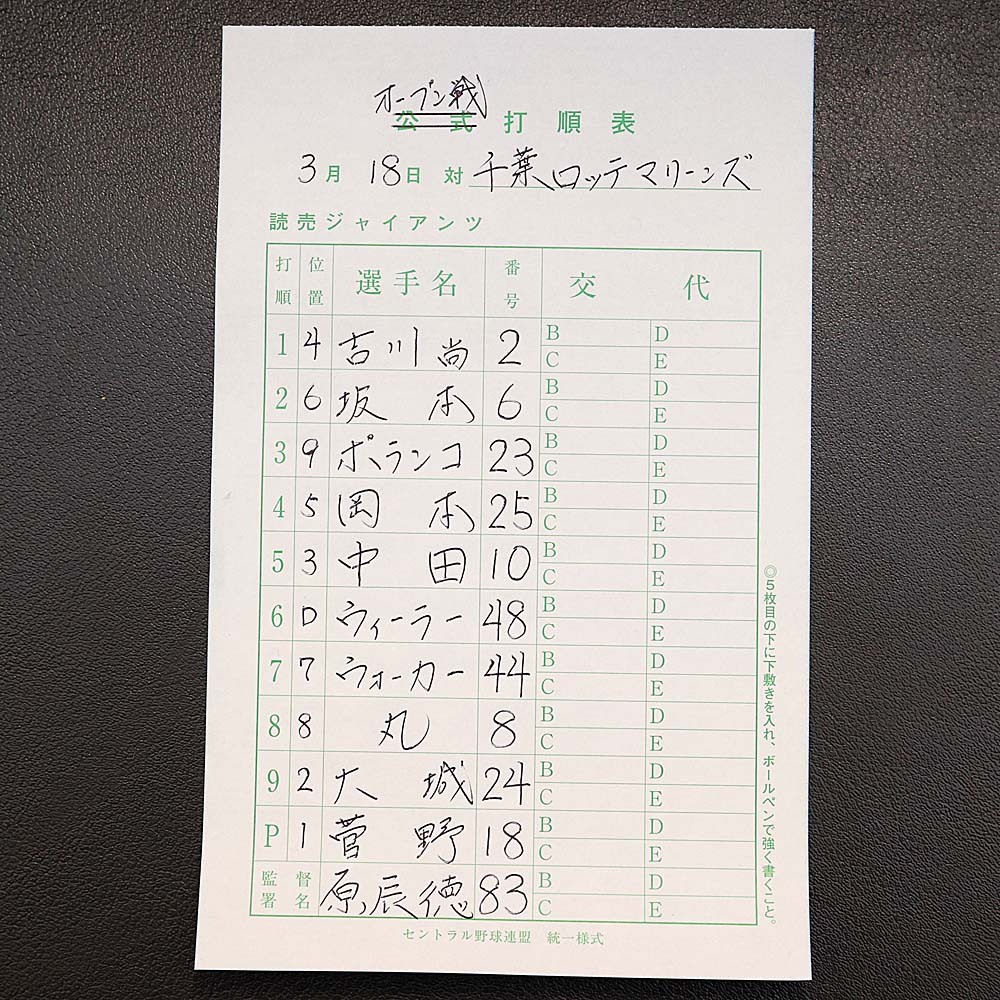 オープン戦
公式打順表
3月18日 対 千葉ロッテマリーンズ
読売ジャイアンツ
打順 位置 選手名 番号 交代
1 4 吉川尚 2 B D C E
2 6 坂本 6 B D C E
3 9 ポランコ 23 B D C E
4 5 岡本 25 B D C E
5 3 中田 10 B D C E
6 D ウィーラー 48 B D C E
7 7 ウォーカー 44 B D C E
8 8 丸 8 B D C E
9 2 大城 24 B D C E
P 1 菅野 18 B D C E
監督署名 原辰徳 83 B D C E
◎5枚目の下に下敷きを入れ、ボールペンで強く書くこと。
セントラル野球連盟 統一様式